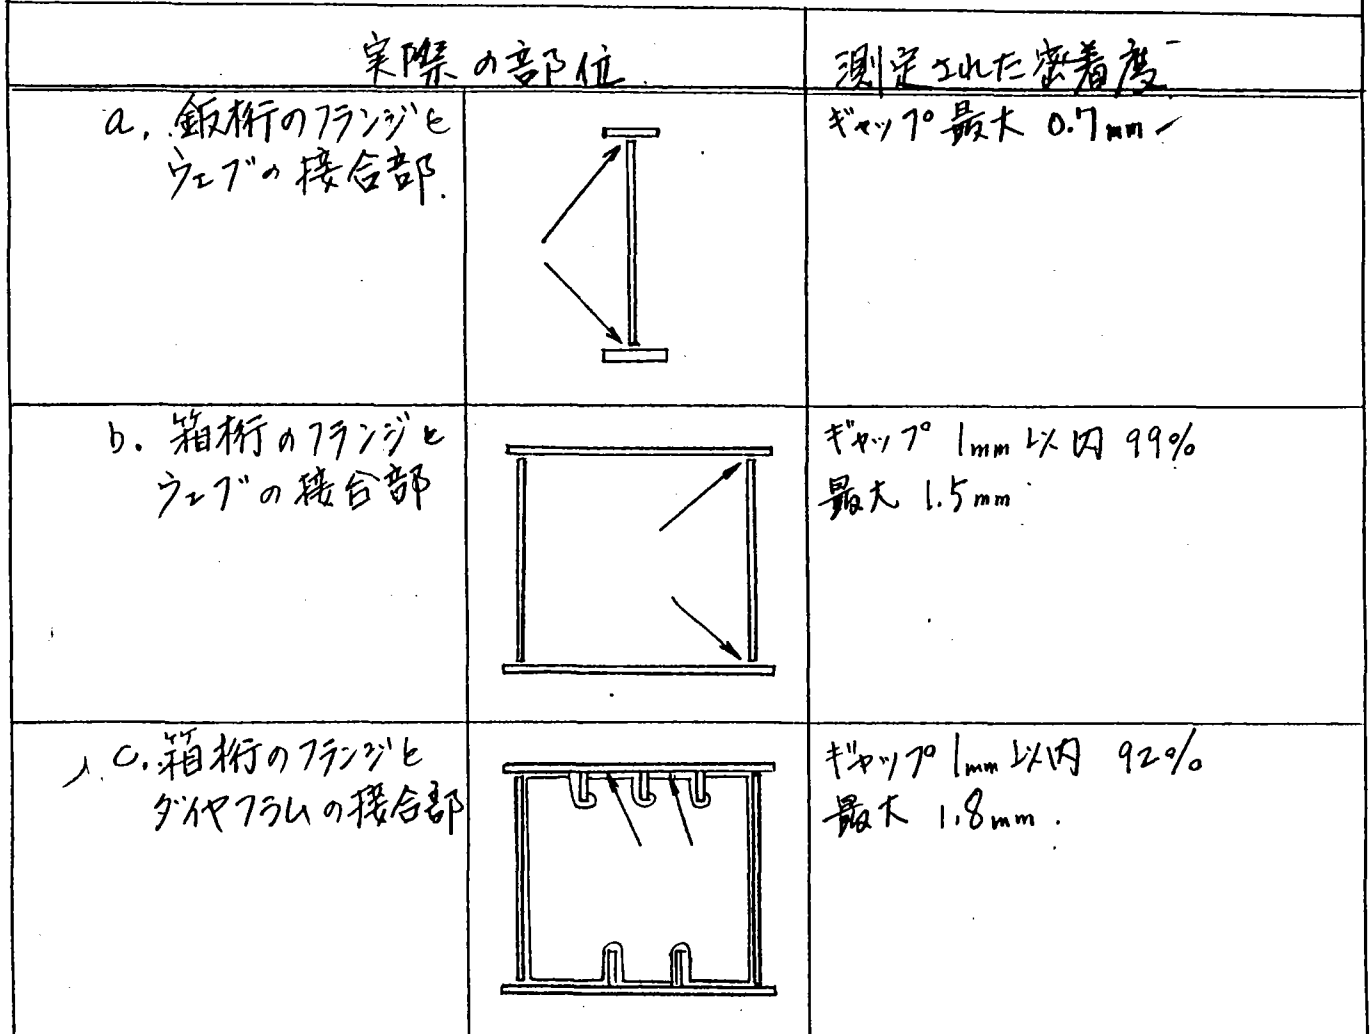 実際の部位
測定された密着度
a. 鈑桁のフランジと
ウェブの接合部.
ギャップ最大 0.7mm
b. 箱桁のフランジと
ウェブの接合部
ギャップ 1mm以内 99%
最大 1.5mm
c. 箱桁のフランジと
ダイヤフラムの接合部
ギャップ 1mm以内 92%
最大 1.8mm.